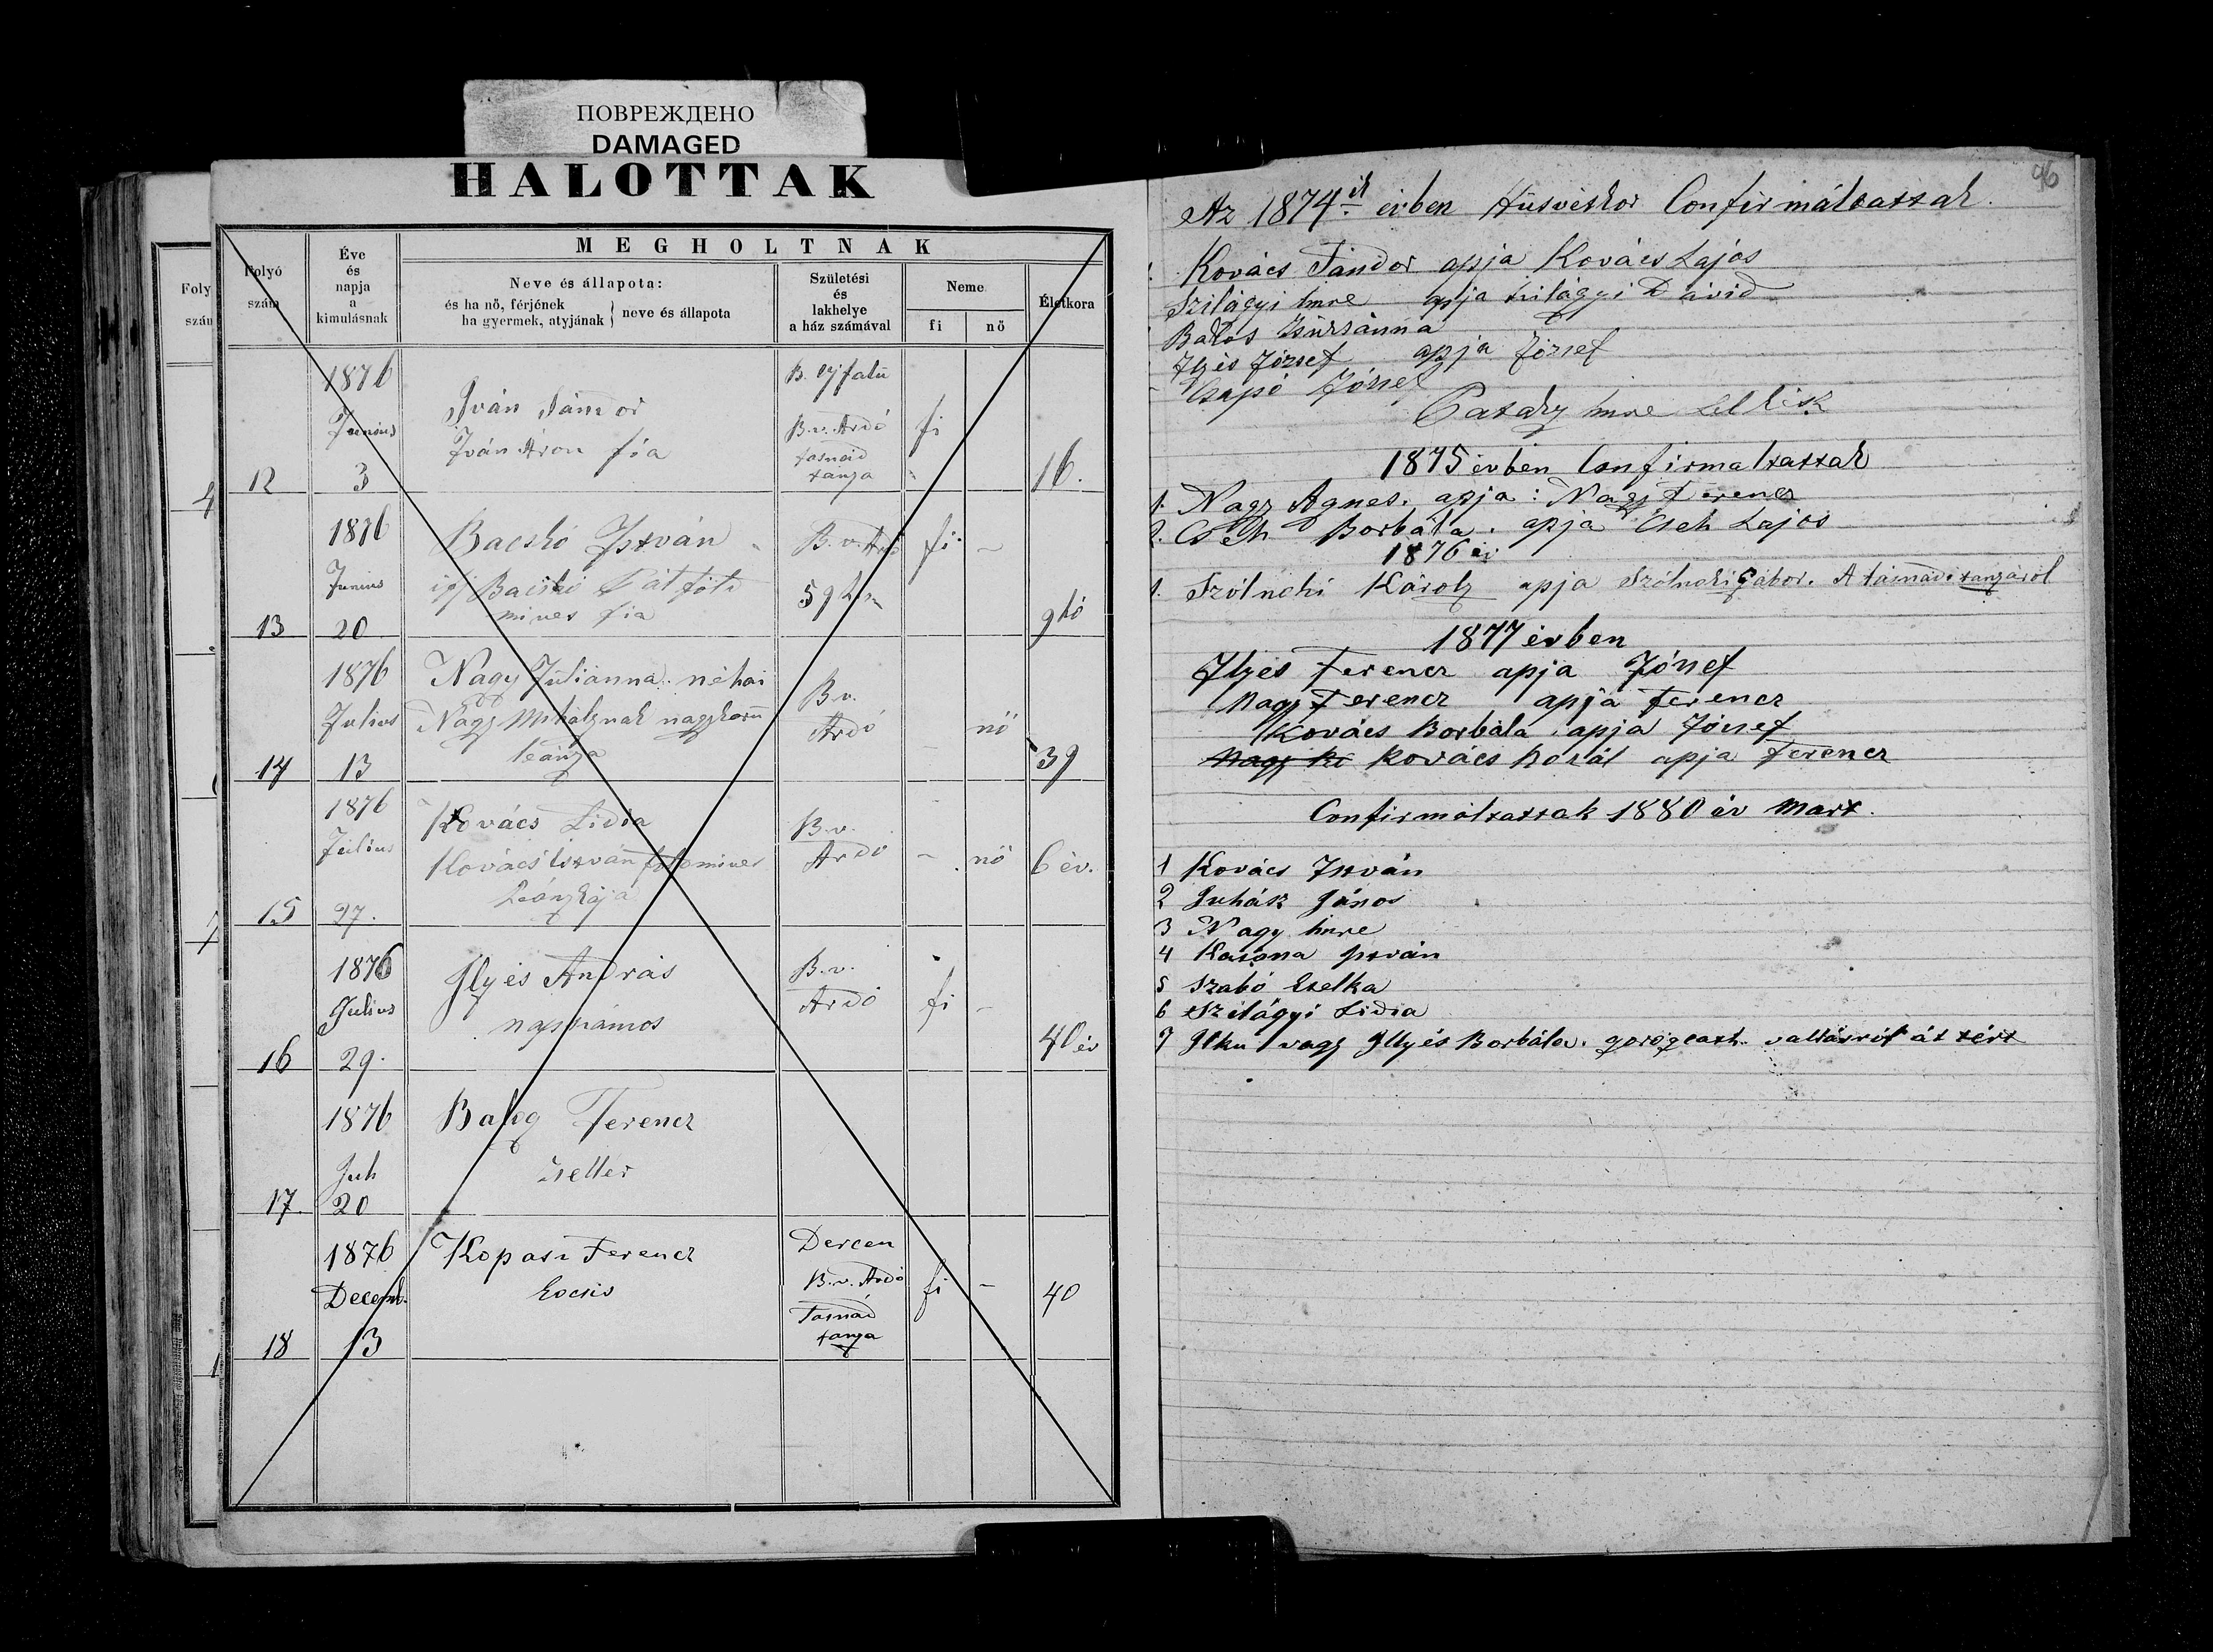 ПОВРЕЖДЕНО
DAMAGED
HALOTTAK
Folyó
szám
Éve
és
napja
a
kimulásnak
MEGHOLTNAK
Neve és állapota:
és ha nő, férjének
ha gyermek, atyjának } neve és állapota
Születési
és
lakhelye
a ház számával
Neme
fi
nő
Életkora
Foly
szám
12
1876
Junius
3
Iván Sándor
Iván Áron fia
B. Ujfalu
B.v. Ardó
tasnád
tanya
fi
16.
13
1876
Junius
20
Bacskó István
ifj Bacskó Pál föld
mives fia
B.v. Ardó
fi
9 hó
14
1876
Julius
13
Nagy Juliánna néhai
Nagy Mihálynak nagykorú
leánya
B v.
Ardó
nő
39
15
1876
Julius
27.
Kovács Lidia
Kovács István földmives
Leánykája
B.v.
Ardó
nő
6 év.
16
1876
Julius
29.
Ilyés András
napszámos
B.v.
Ardó
fi
40 év
17.
1876
Juli
20
Ferencz
zsellér
18
1876
Decemb.
13
Kopasz Ferencz
kocsis
Dercen
B.v. Ardó
Tasnád
tanya
fi
40
96
Az 1874ik évben Húsvétkor Confirmáltattak.
Kovács Sándor apja Kovács Lajos
Szilágyi Imre apja Szilágyi Dávid
Zsuzsánna
Ilyés József apja József
Csapó József
Pataky Imre Lelkész
1875 évben Confirmaltattak
1. Nagy Agnes. apja: Nagy Ferencz
2. Cseh Borbála. apja Cseh Lajos
1876 év
1. Szólnoki Károly apja Szólnoki Gábor. A tasnádi tanyáról
1877 évben
Ilyés Ferencz apja József
Nagy Ferencz apja Ferencz
Kovács Borbála apja József
Kovács apja Ferencz
Confirmáltattak 1880 év Mart.
1 Kovács István
2 Juhász János
3 Nagy Imre
4 Katona István
5 Szabó Etelka
6 Szilágyi Lidia
7 Ilku vagy Illyés Borbála. görögcath. vallásról át tért